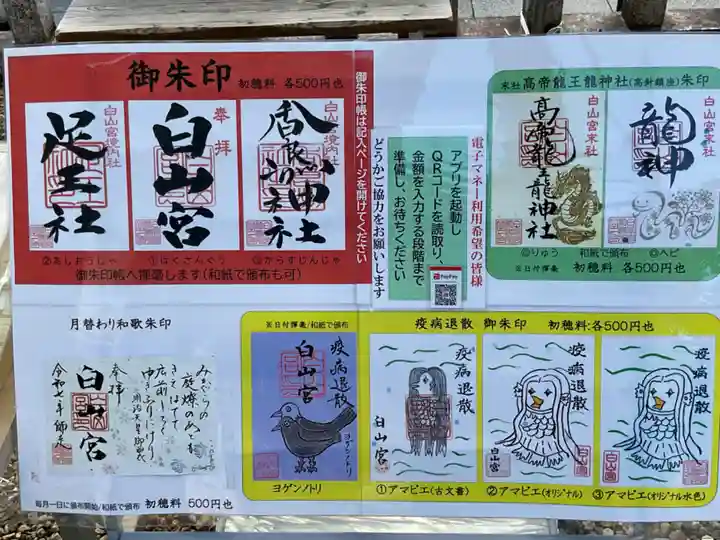 御朱印 初穂料 各500円也
白山宮境内社
足王社
奉拝
白山宮
白山宮境内社
神社
②あしおうしゃ
①はくさんぐう
③からすじんじゃ
御朱印帳へ揮毫します(和紙で頒布も可)
御朱印帳は記入ページを開けてください
電子マネー利用希望の皆様
アプリを起動し
QRコードを読取り、
金額を入力する段階まで
準備し、お待ちください
どうかご協力をお願いします
PayPay
末社 高帝龍王龍神社(高針鎮座)朱印
白山宮末社
高帝龍王龍神社
白山宮末社
龍神
◎りゅう 和紙で頒布 ◎ヘビ
※日付揮毫 初穂料 各500円也
月替わり和歌朱印
みかぐらの
庭燎のあとも
きえはてて
店前しろく
ゆきふりにけり
明治天皇御製
奉拝
白山宮
令和七年師走
毎月一日に頒布開始/和紙で頒布 初穂料 500円也
※日付揮毫/和紙で頒布
疫病退散
白山宮
ヨゲンノトリ
ヨゲンノトリ
疫病退散 御朱印 初穂料:各500円也
疫病退散
白山宮
①アマビエ(古文書)
疫病退散
白山宮
②アマビエ(オリジナル)
疫病退散
白山宮
③アマビエ(オリジナル水色)